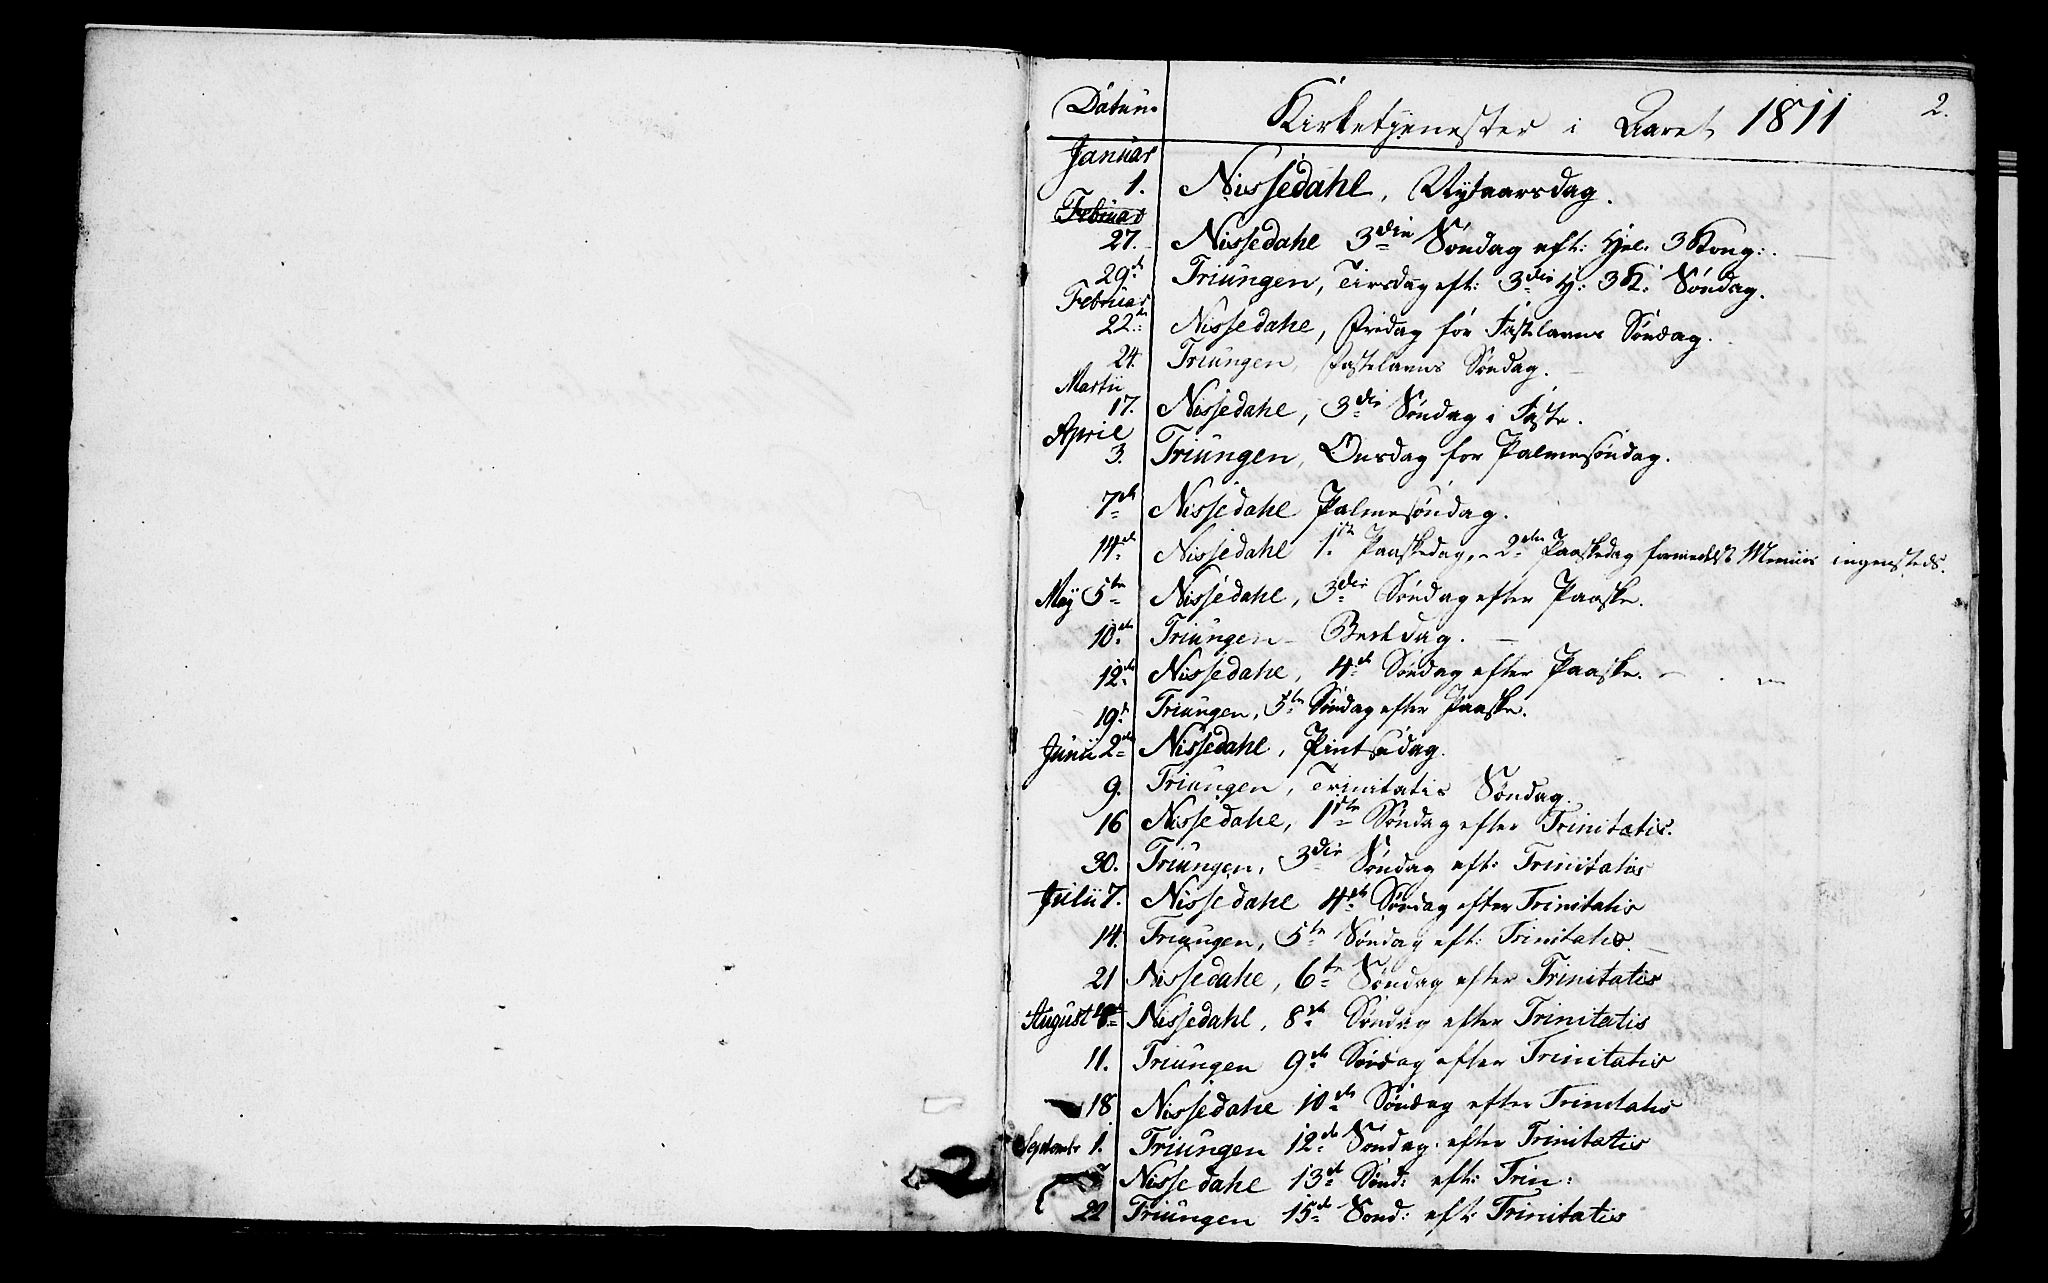 2.
Datum
Kirketjenester i Aaret 1811
Januar
1. Nissedahl, Nytaarsdag.
Februar
27. Nissedahl 3die Søndag eft: Hel. 3 Kong:.
29d Triungen, Tirsdag eft: 3die H: 3 K: Søndag.
Februar
22. Nissedahl, Fredag for Fastelavns Søndag.
24. Triungen, Fastelavns Søndag.
Martii
17. Nissedahl, 3die Søndag i Faste.
April
3. Triungen, Onsdag for Palmesøndag.
7de Nissedahl Palmesøndag.
14de Nissedahl 1ste Paaskedag, 2den Paaskedag formedelst Meniis ingensteds.
Maÿ 5te Nissedahl, 3die Søndag efter Paaske.
10de Triungen Bededag.
12de Nissedahl, 4de Søndag efter Paaske.
19. Triungen, 5te Søndag efter Paaske.
Junii 2de Nissedahl, Pintsedag.
9. Triungen, Trinitatis Søndag.
16 Nissedahl, 1ste Søndag efter Trinitatis.
30. Triungen, 3die Søndag eft: Trinitatis
Julii 7. Nissedahl 4de Søndag efter Trinitatis
14. Triungen, 5te Søndag eft: Trinitatis.
21 Nissedahl, 6te Søndag efter Trinitatis
August 4de Nissedahl, 8de Søndag efter Trinitatis
11. Triungen 9de Søndag efter Trinitatis
18 Nissedahl 10de Søndag efter Trinitatis
Septembr 1. Triungen 12de Søndag efter Trinitatis
Nissedahl 13de Sønd: eft: Trin:
22 Triungen 15de Sønd: eft: Trinitatis
2